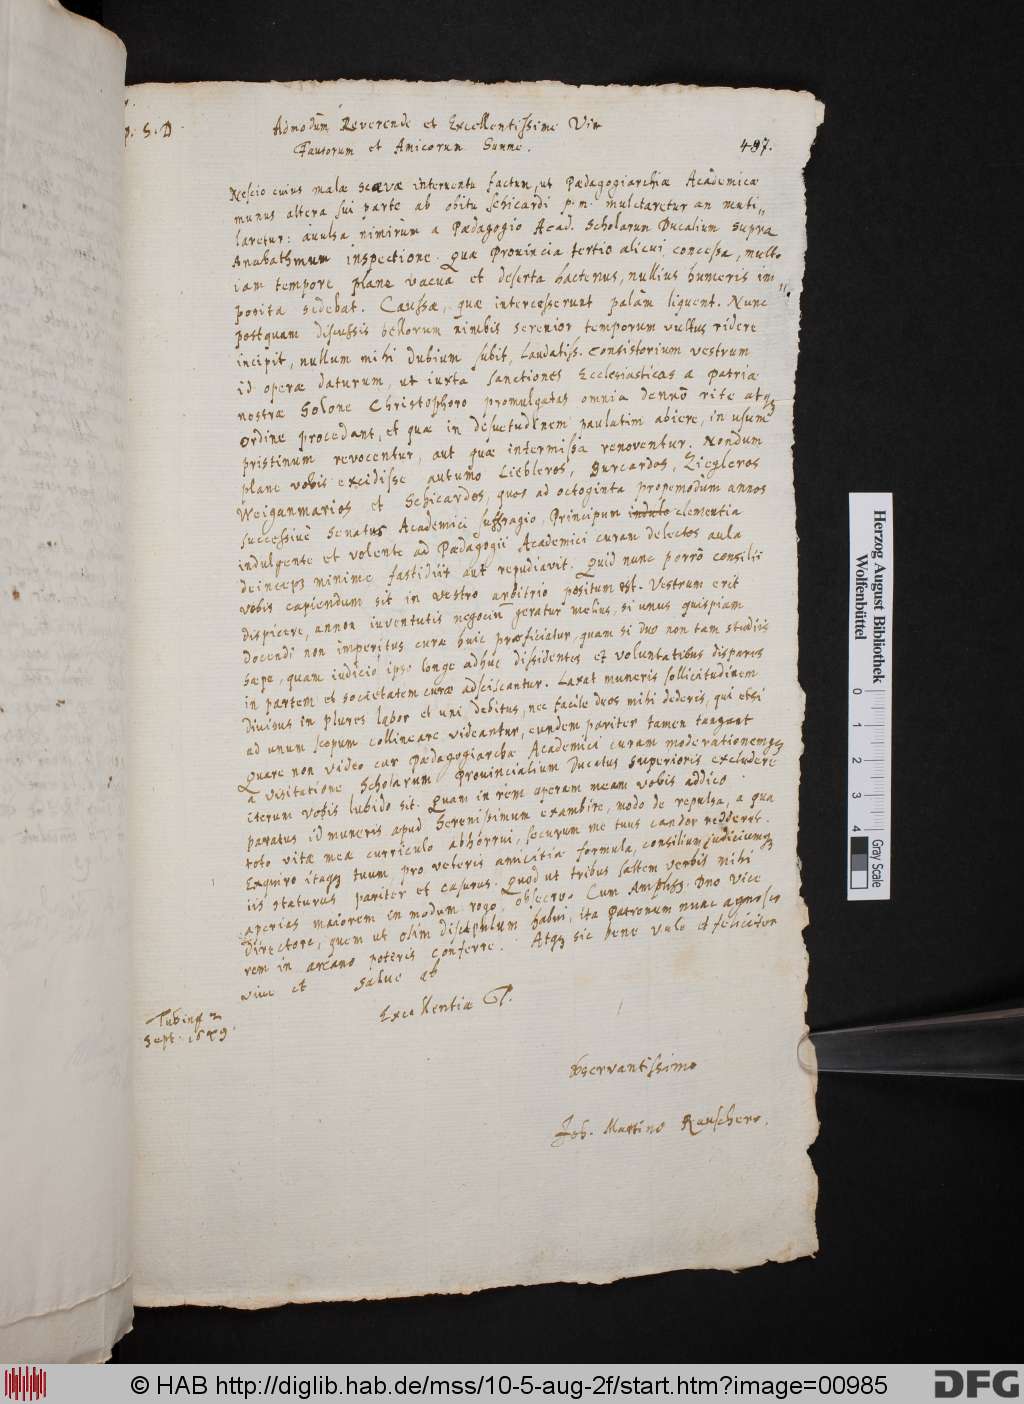 p. S. D.
Admodùm Reverende et Excellentissime Vir
Fautorum et Amicorum Summe.
487.
Nescio cuius malæ scævæ interventu factum, ut Pædagogiarchiæ Academicæ
munus altera sui parte ab obitu Schicardi p. m. mulctaretur an muti„
laretur: avulsa nimirùm a Pædagogio Acad. Scholarum Ducalium supra
Anabathmum inspectione. Quæ Provincia tertio alicui concessa, multo
iam tempore planè vacua et deserta hactenus, nullius humeris im„
posita sedebat. Caussæ, quæ intercesserunt palàm liquent. Nunc
postquam discussis bellorum nimbis serenior temporum vultus ridere
incipit, nullum mihi dubium subit, Laudatiss. Consistorium vestrum
id operæ daturum, ut iuxta sanctiones Ecclesiasticas a Patriæ
nostræ Solone Christophoro promulgatas omnia denuò rite atq;
ordine procedant, et quæ in desuetudinem paulatim abiere, in usum
pristinum revocentur, aut quæ intermissa renoventur. Nondum
planè vobis excidisse autumo Liebleros, Burcardos, Ziegleros
Weiganmarios et Schicardos, quos ad octoginta propemodùm annos
successivè Senatus Academici suffragio, Principum indulo clementia
indulgente et volente ad Pædagogii Academici curam delectos aula
deinceps minimè fastidiit aut repudiavit. Quid nunc porrò consilii
vobis capiendum sit in vestro arbitrio positum est. Vestrum erit
dispicere, annon iuventutis negocium geratur melius, si unus quispiam
docendi non imperitus curæ huic præficiatur, quam si duo non tam studiis
sæpe, quam iudicio ipso longe adhuc dissidentes et voluntatibus dispares
in partem et societatem curæ adsciscantur. Laxat muneris sollicitudinem
divisus in plures labor et uni debitus, nec facile duos mihi dederis, qui etsi
ad unum scopum collineare videantur, eundem pariter tamen tangant
Quare non video cur Pædagogiarchæ Academici curam moderationemq;
a visitatione Scholarum Provincialium Ducatus superioris excludere
iterum vobis lubido sit. Quam in rem operam meam vobis addico
paratus id muneris apud Serenissimum exambire, modo de repulsa, a qua
toto vitæ meæ curriculo abhorrui, securum me tuus candor redderet.
Exquiro itaq; tuum, pro veteris amicitiæ formula, consilium judiciumq;
iis staturus pariter et casurus. Quod ut tribus saltem verbis mihi
aperias maiorem in modum rogo, observo. Cum Ampliss. Dno Vice
directore, quem ut olim discipulum habui, ita Patronum nunc agnosco
rem in arcano poteris conferre. Atq; sic bene vale et feliciter
vive et salve ab
Excellentiæ T.
Tubingæ 2
Sept. 1649.
Observantissimo
Joh. Martino Rauschero.
Herzog August Bibliothek
Wolfenbüttel
0 1 2 3 4
Gray Scale
© HAB http://diglib.hab.de/mss/10-5-aug-2f/start.htm?image=00985
DFG